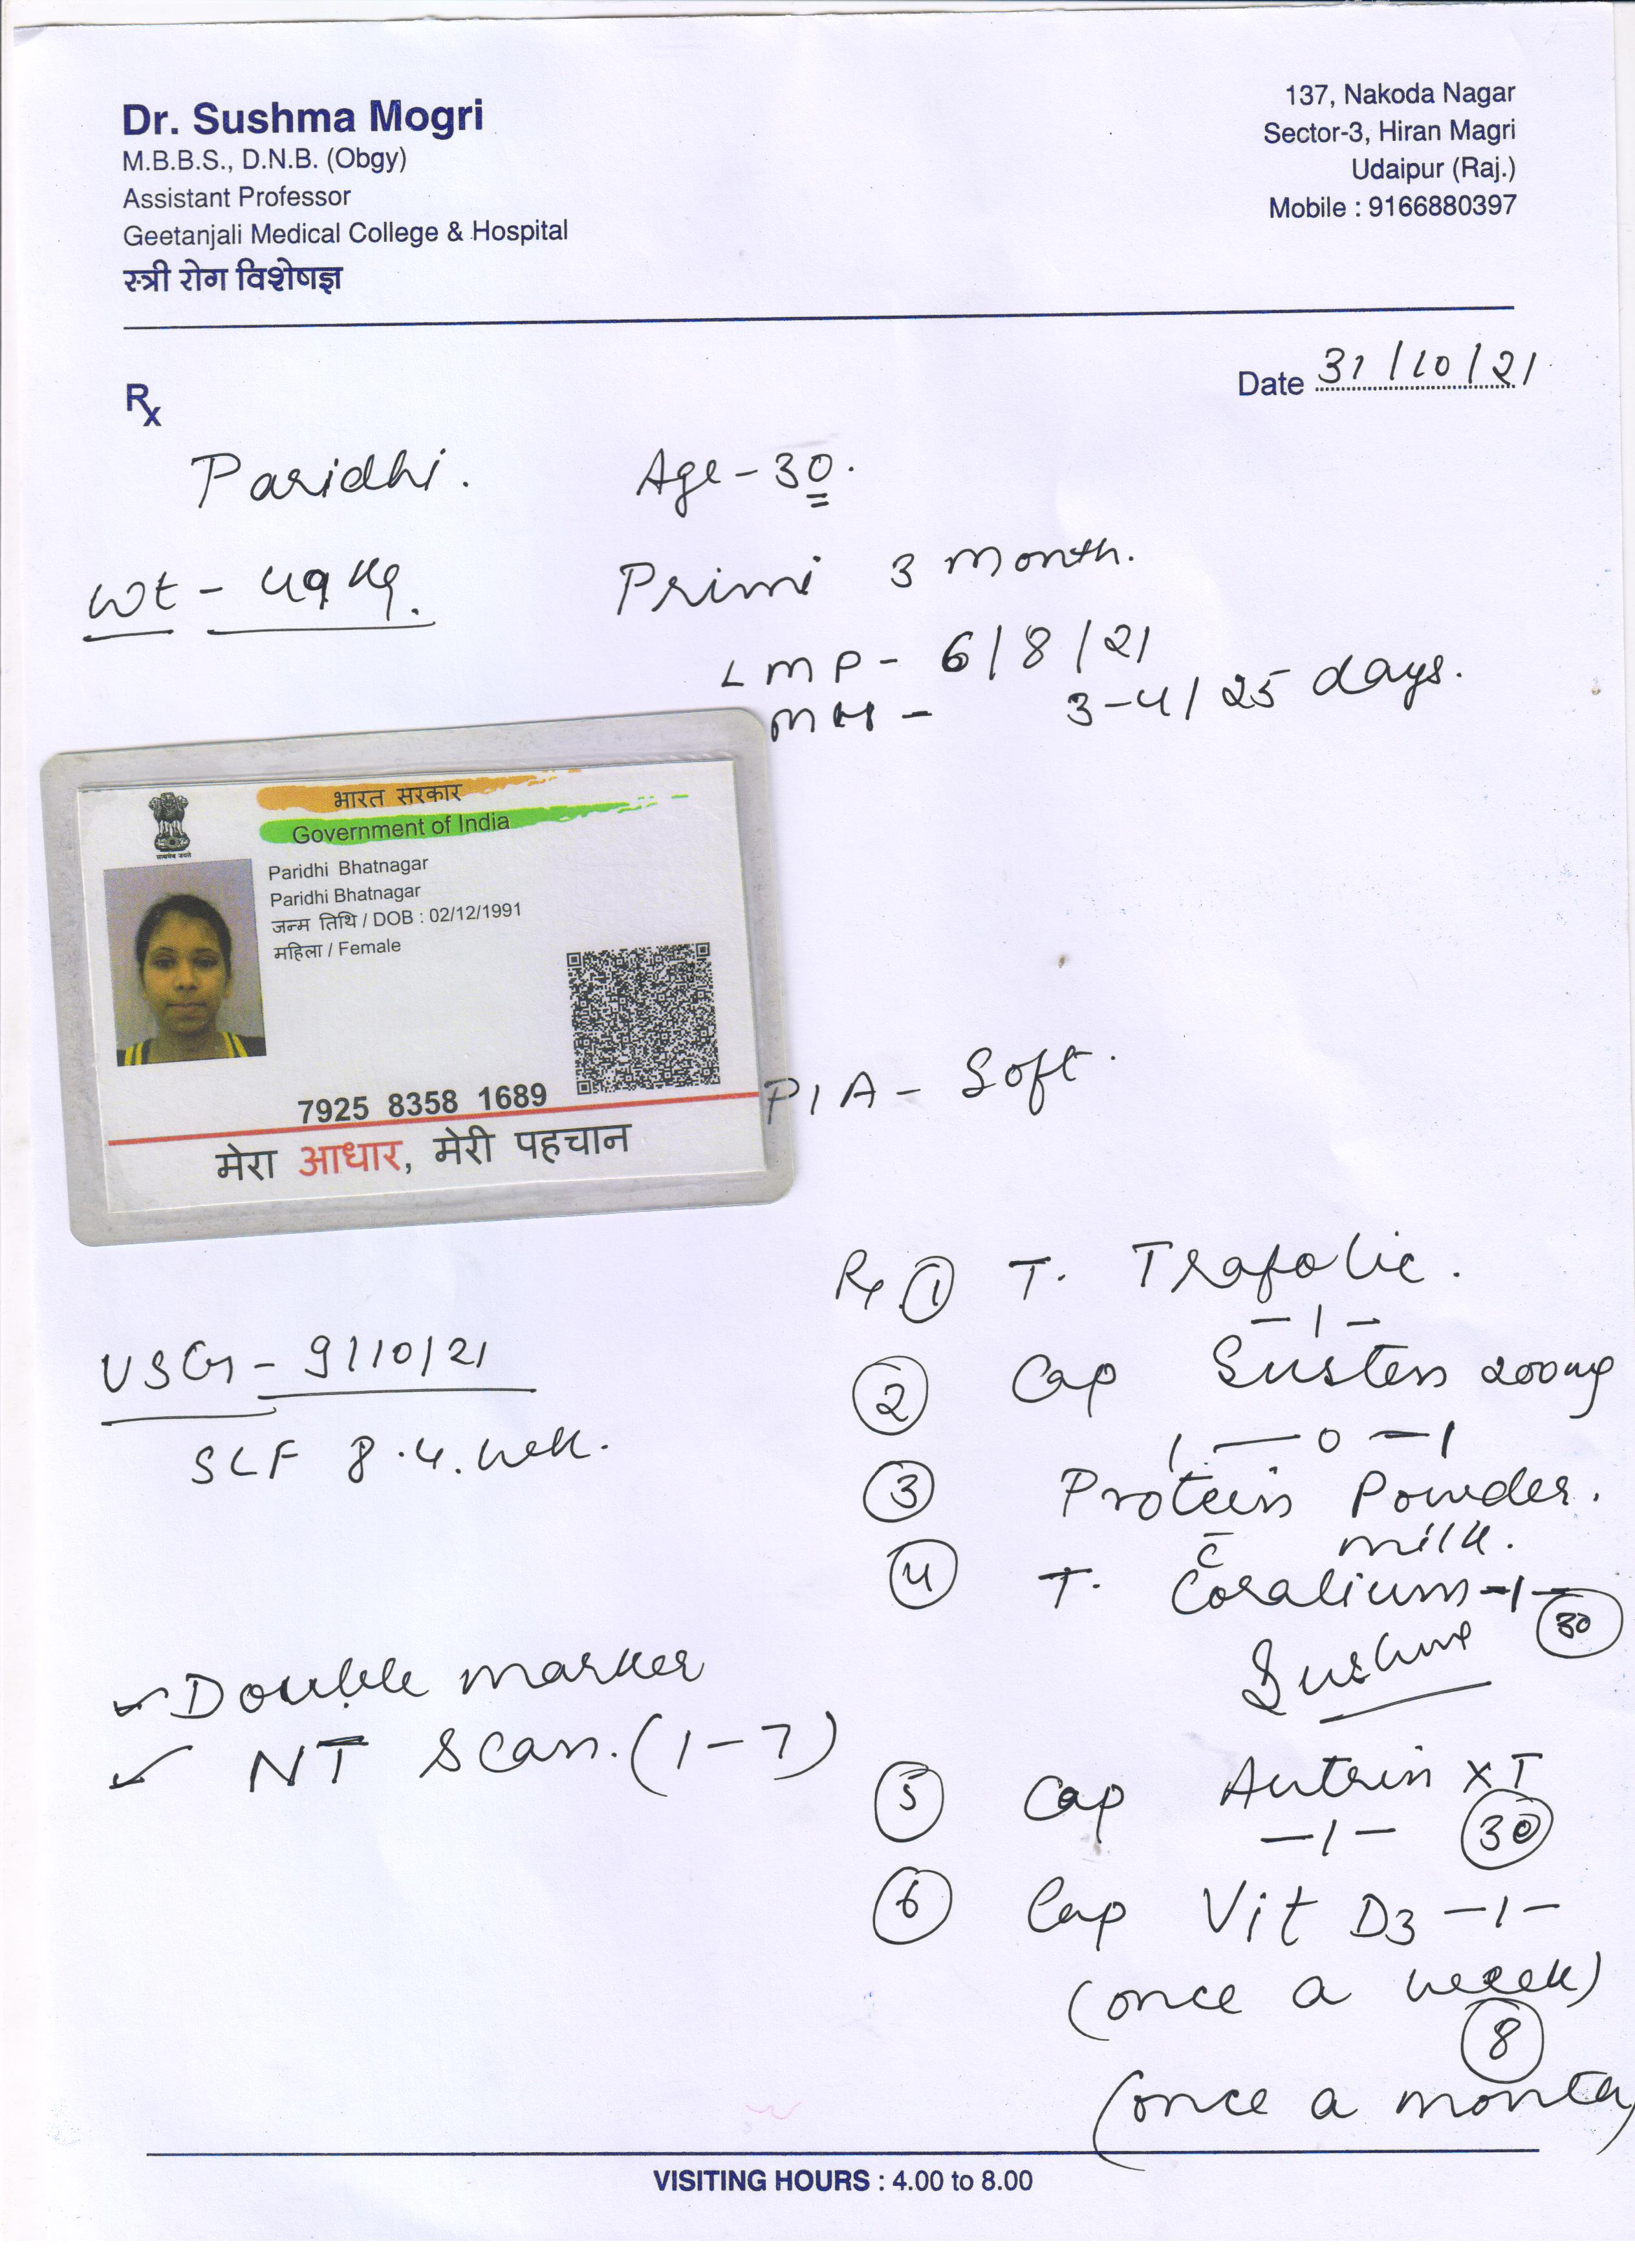 Dr. Sushma Mogri
M.B.B.S., D.N.B. (Obgy)
Assistant Professor
Geetanjali Medical College & Hospital
स्त्री रोग विशेषज्ञ
137, Nakoda Nagar
Sector-3, Hiran Magri
Udaipur (Raj.)
Mobile : 9166880397
Rx
Date 31/10/21
Paridhi. Age - 30.
Wt - 49 kg. Primi 3 month.
LMP - 6/8/21
MH - 3-4/25 days.
भारत सरकार
Government of India
Paridhi Bhatnagar
Paridhi Bhatnagar
जन्म तिथि / DOB : 02/12/1991
महिला / Female
7925 8358 1689
मेरा आधार, मेरी पहचान
P/A - Soft.
Rx ① T. Trafolic.
-1-
② Cap Susten 200mg
1-0-1
③ Protein Powder.
c̄ milk.
④ T. Coralium -1-
30
USG - 9/10/21
SLF 8.4. wk.
Double marker
NT Scan. (1-7)
⑤ Cap Autrin XT
-1- 30
⑥ Cap Vit D3 -1-
(once a week)
8
(once a month
VISITING HOURS : 4.00 to 8.00